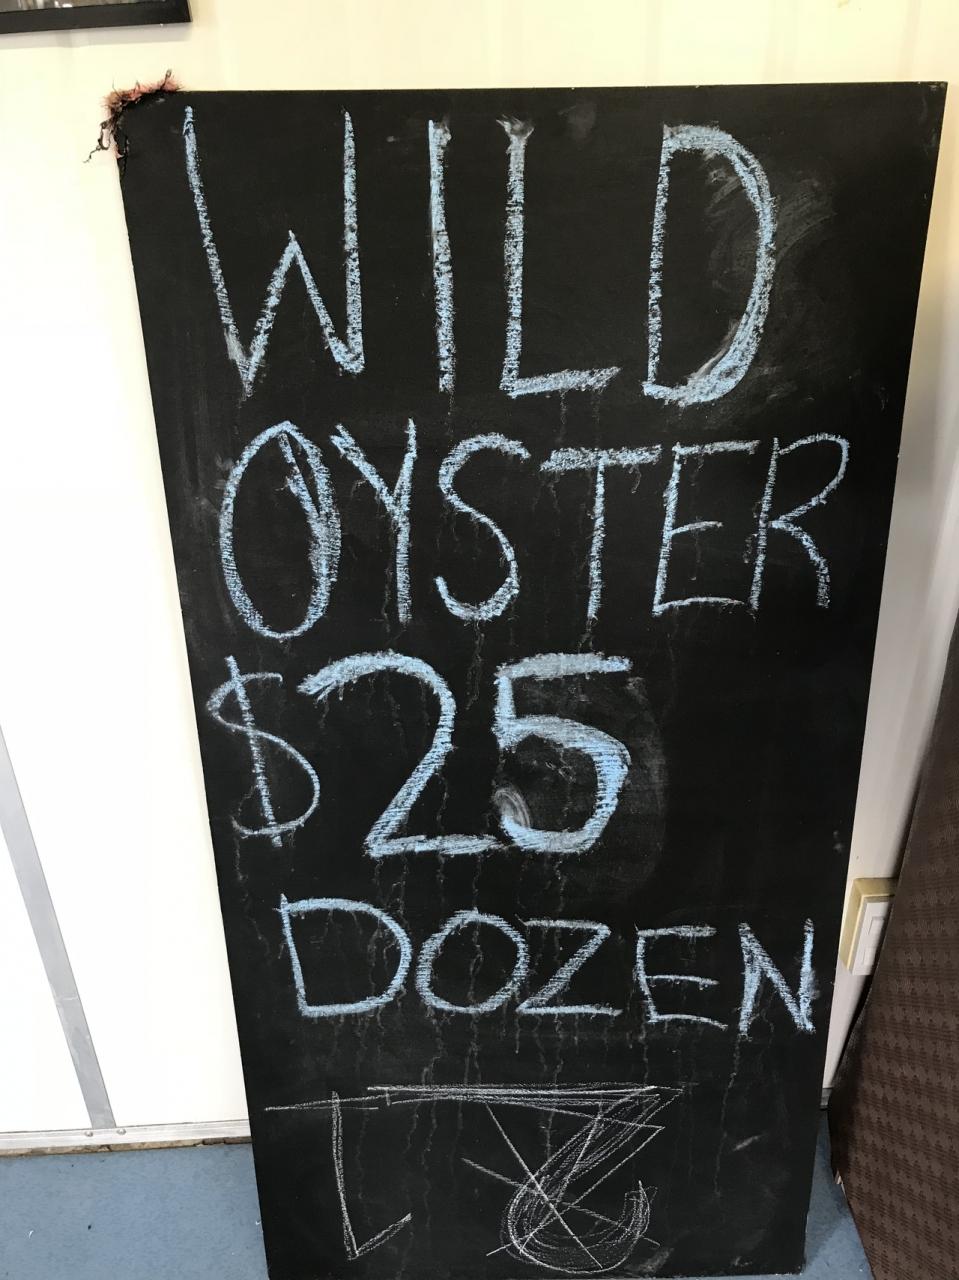 WILD
OYSTER
$25
DOZEN